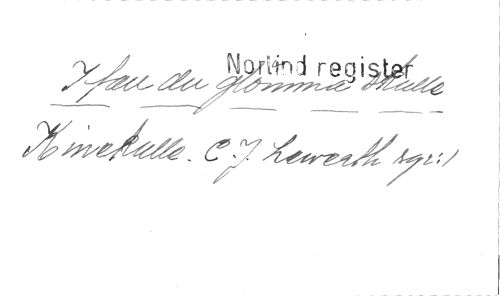 Norlind register
Ifall du glömma skulle
Kinekulle. C. J. Lewerth sgr:1